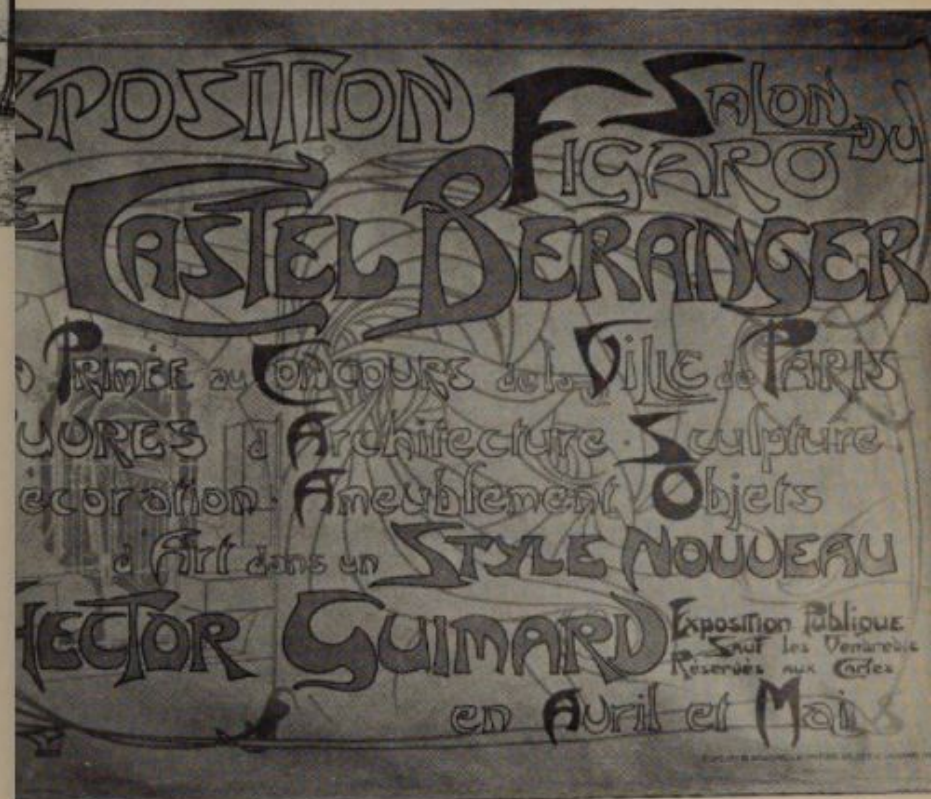 XPOSITION SALON DU
FIGARO
E CASTEL BERANGER
PRIMÉE au CONCOURS de la VILLE de PARIS
UVRES d'Architecture Sculpture
ecoration Ameublement Objets
d'Art dans un STYLE NOUVEAU
HECTOR GUIMARD
Exposition Publique
Sauf les Vendredis
Réservés aux Cartes
en Avril et Mai